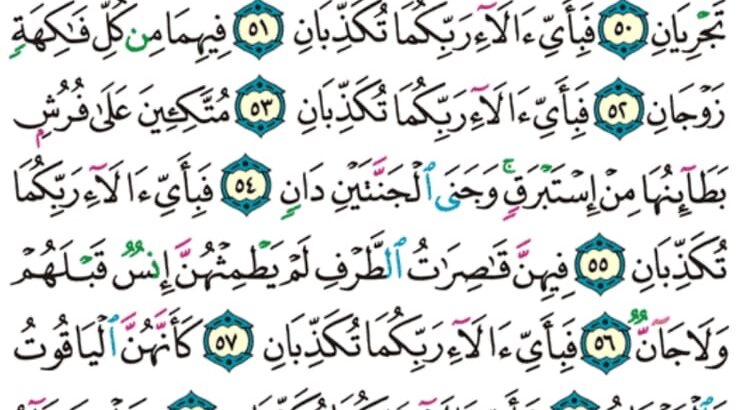 تَجْرِيَانِ ٥٠ فَبِأَيِّ ءَالَآءِ رَبِّكُمَا تُكَذِّبَانِ ٥١ فِيهِمَا مِن كُلِّ فَاكِهَةٍ
زَوْجَانِ ٥٢ فَبِأَيِّ ءَالَآءِ رَبِّكُمَا تُكَذِّبَانِ ٥٣ مُتَّكِـِٔينَ عَلَىٰ فُرُشٍ
بَطَآئِنُهَا مِنْ إِسْتَبْرَقٍ ۚ وَجَنَى ٱلْجَنَّتَيْنِ دَانٍ ٥٤ فَبِأَيِّ ءَالَآءِ رَبِّكُمَا
تُكَذِّبَانِ ٥٥ فِيهِنَّ قَاصِرَاتُ ٱلطَّرْفِ لَمْ يَطْمِثْهُنَّ إِنسٌ قَبْلَهُمْ
وَلَا جَآنٌّ ٥٦ فَبِأَيِّ ءَالَآءِ رَبِّكُمَا تُكَذِّبَانِ ٥٧ كَأَنَّهُنَّ ٱلْيَاقُوتُ